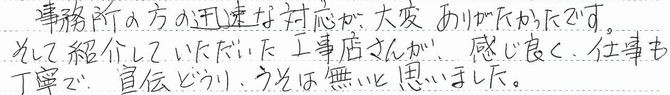 事務所の方の迅速な対応が、大変 ありがたかったです。
そして紹介していただいた工事店さんが、感じ良く、仕事も
丁寧で、宣伝どうり、うそは無いと思いました。